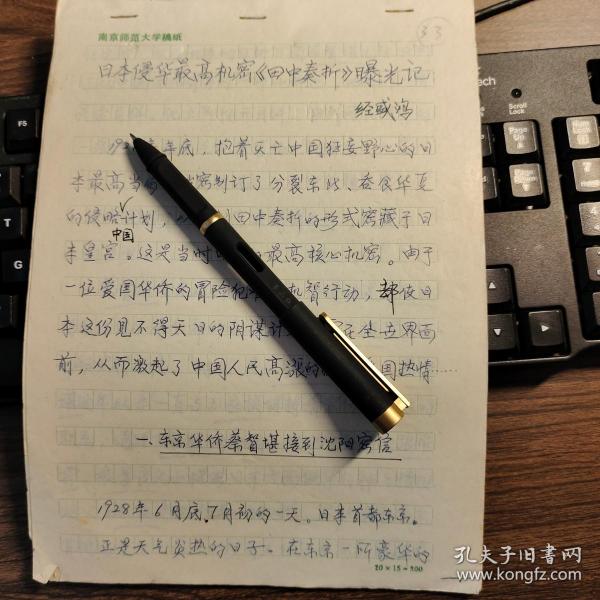 南京师范大学稿纸
33
日本侵华最高机密《田中奏折》曝光记
经盛鸿
年底，抱着灭亡中国狂妄野心的日
本最高当 密制订了分裂东北、吞食华夏
的侵略计划， 田中奏折的形式密藏于日
中国
本皇宫。这是当时 最高核心机密。由于
一位爱国华侨的冒险 机智行动，却使日
本这份见不得天日的阴谋计 世界面
前，从而激起了中国人民高涨的 国热情……
一、东京华侨蔡智堪接到沈阳密信
1928年6月底、7月初的一天。日本首都东京。
正是天气炎热的日子。在东京一所豪华的
20×15=300
F5
T
G
B
Scroll Lock
tech
Page Up
Page Down
孔夫子旧书网
www.kongfz.com